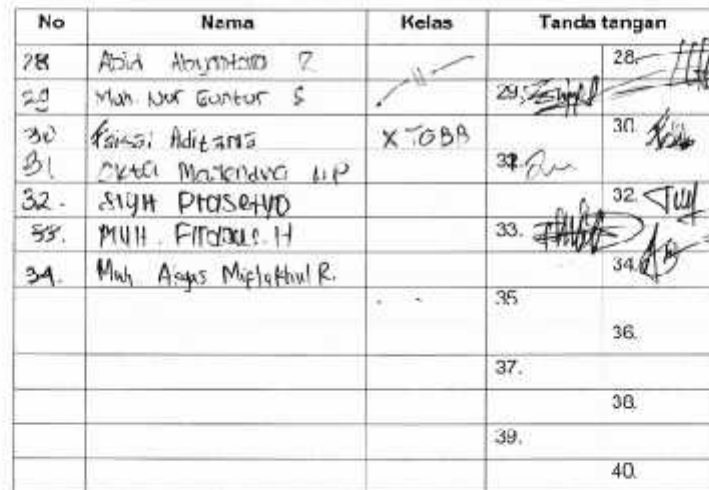 No Nama Kelas Tanda tangan
28 Abid Abiyantoro Z — 11 — 28.
29 Muh. Nur Guntur S 29.
30 Faisal Aditama X TOBB 30
31 Okta Mahendra NP 31.
32. SIGIH Prasetyo 32.
33. MUH. Firdaus. H 33.
34. Muh Agus Miftakhul R. 34.
35
36.
37.
38.
39.
40.